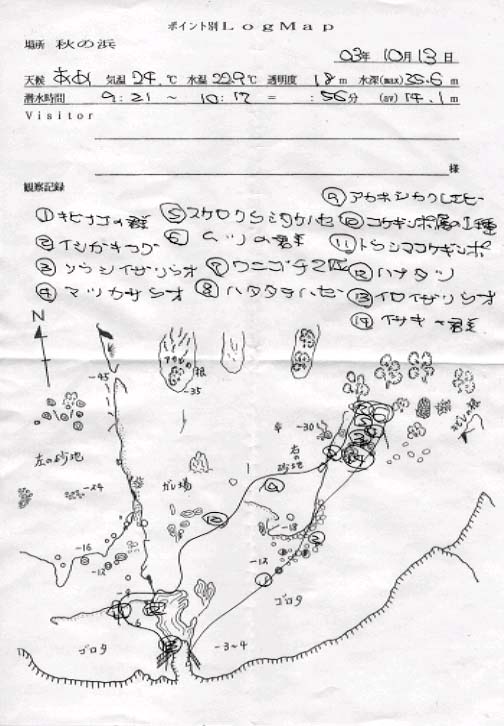 ポイント別 LogMap
場所 秋の浜
03年 10月 13日
天候 あめ 気温 24.℃ 水温 22.9℃ 透明度 18m 水深(max) 35.6m
潜水時間 9:21 ～ 10:17 = :56分 (av) 14.1m
Visitor
様
観察記録
⑨ アカホシカクレエビ
① キビナゴの群 ⑤ スケロクウミタケハゼ ⑩ コケギンポ属の1種
② イシガキフグ ⑥ ムツの群 ⑪ トウシマコケギンポ
③ ソウシイザリウオ ⑦ ワニゴチ2匹 ⑫ ハナタツ
④ マツカサウオ ⑧ ハタタテハゼ ⑬ イロイザリウオ
⑭ イサキの群
N
-45
の根
-35
左の砂地
-30
右の砂地
ガレ場
-24
-18
-16
-12
-12
-8
6
ゴロタ
-3~4
ゴロタ